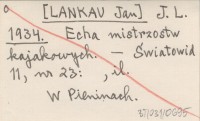 [LANKAU Jan] J. L.
1934. Echa mistrzostw
kajakowych. — Światowid
11, nr 23: , il.
W Pieninach.